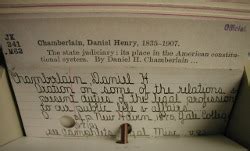 Official
JX
241
.M62
Chamberlain, Daniel Henry, 1835-1907.
The state judiciary: its place in the American constitu-
tional system. By Daniel H. Chamberlain ...
Chamberlain Daniel H
on some of the relations
present duties of the legal profession
to our public life & affairs.
New Haven, Yale College